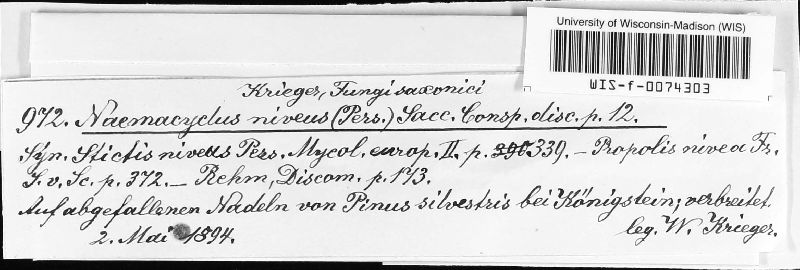 University of Wisconsin-Madison (WIS)
WIS-f-0074303
Krieger, Fungi saxonici
972. Naemacyclus niveus (Pers.) Sacc. Consp. disc. p. 12.
Syn. Stictis niveus Pers. Mycol. europ. II. p. 390 339. – Propolis nivea Fr.
S. v. Sc. p. 372. – Rehm, Discom. p. 173.
Auf abgefallenen Nadeln von Pinus silvestris bei Königstein; verbreitet.
2. Mai 1894. leg. W. Krieger.